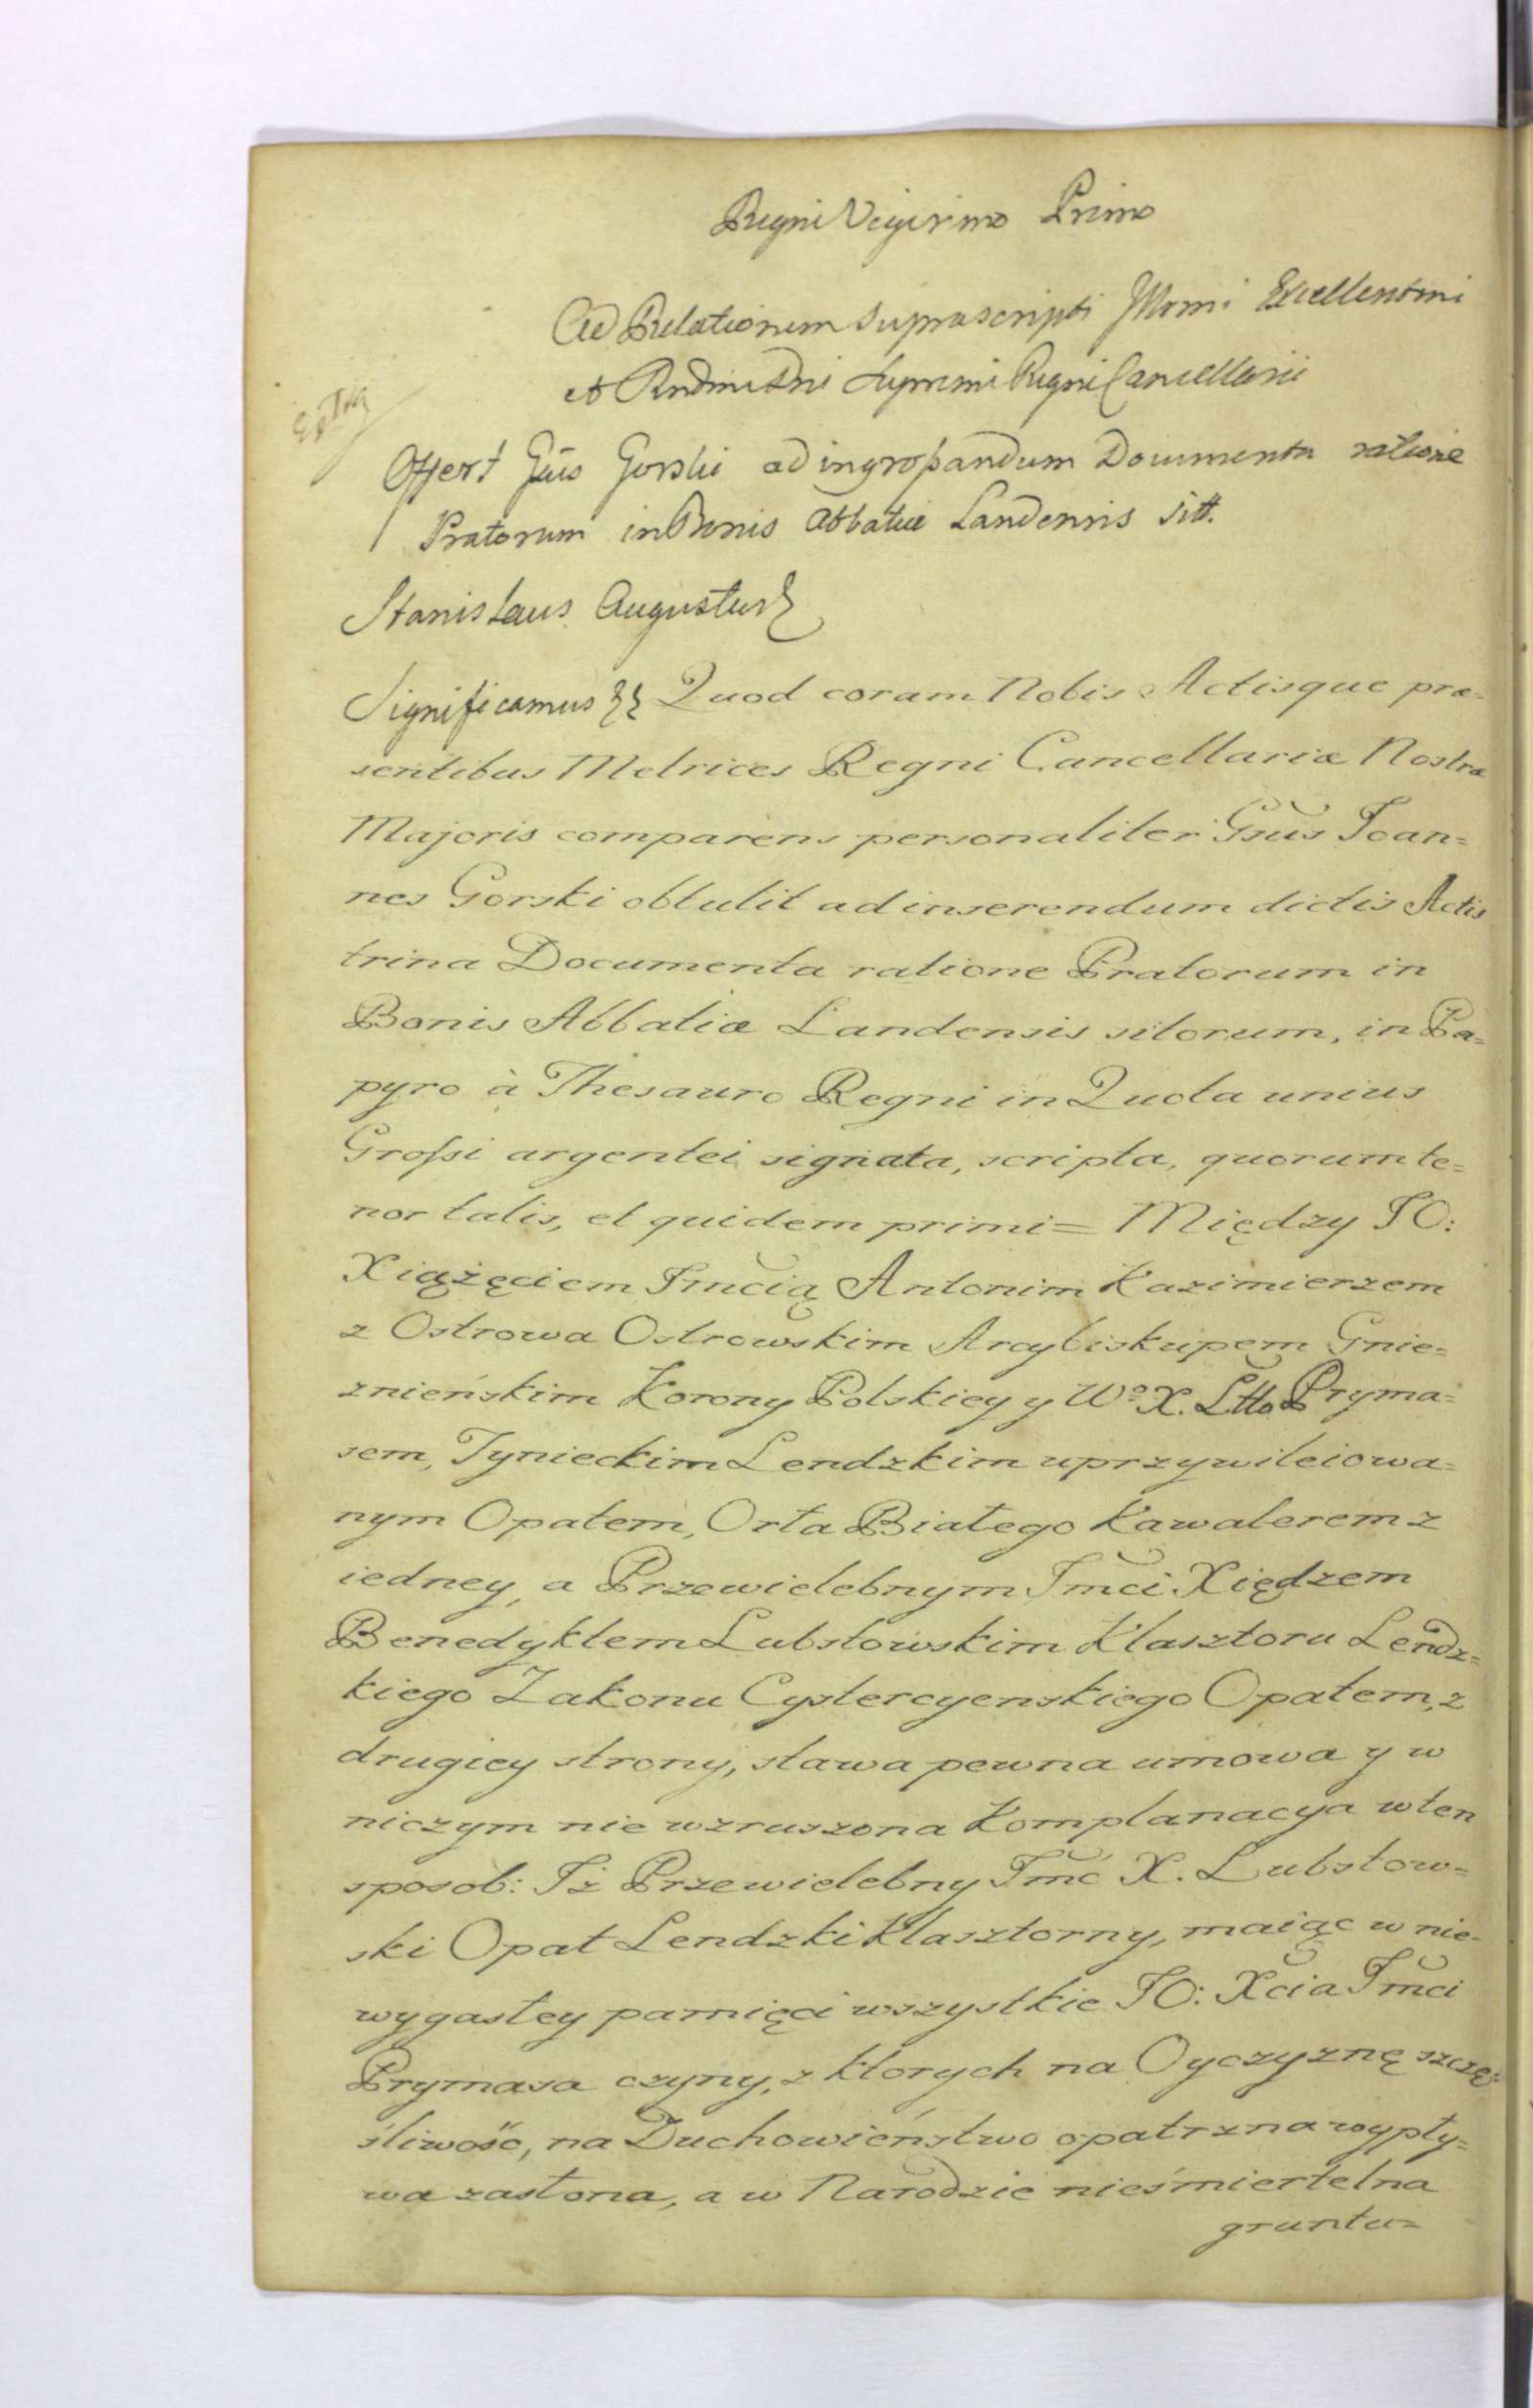 Regni Vigesimo Primo
Ad Relationem supascripti Illmi Excellentmi
et Rndmi Dni Supremi Regni Cancellarii
Offert Gūs Gorski ad ingroſsandum Documenta ratione
Pratorum in Bonis Abbatiæ Landensis sitt.
Stanislaus Augustus
Significamus Quod coram Nobis Actisque præ=
sentibus Metrices Regni Cancellariæ Nostræ
Majoris comparens personaliter Gsūs Joan=
nes Gorski obtulit ad inserendum dictis Actis
trina Documenta ratione Pratorum in
Bonis Abbatiæ Landensis sitorum, in Pa=
pyro à Thesauro Regni in Quota unius
Groſsi argentei signata, scripta, quorum te=
nor talis, et quidem primi= Między JO:
Xiążęciem Jmcią Antonim Kazimierzem
z Ostrowa Ostrowskim Arcybiskupem Gnie=
znieńskim Korony Polskiey y Wº X. Ltto Pryma=
sem, Tynieckim Lendzkim uprzywileiowa=
nym Opatem, Orła Białego Kawalerem z
iedney, a Przewielebnym Jmci Xiędzem
Benedyktem Lubstowskim Klasztoru Lendz=
kiego Zakonu Cystercyenskiego Opatem, z
drugiey strony, stawa pewna umowa y w
niczym nie wzruszona Komplanacya w ten
sposob: Iż Przewielebny Jmć X. Lubstow=
ski Opat Lendzki Klasztorny, maiąc w nie=
wygasłey pamięci wszystkie JO: Xcia Jmci
Prymasa czyny, z ktorych na Oyczyznę szczę=
śliwość, na Duchowieństwo opatrzna wypły=
wa zasłona, a w Narodzie nieśmiertelna
gruntu=